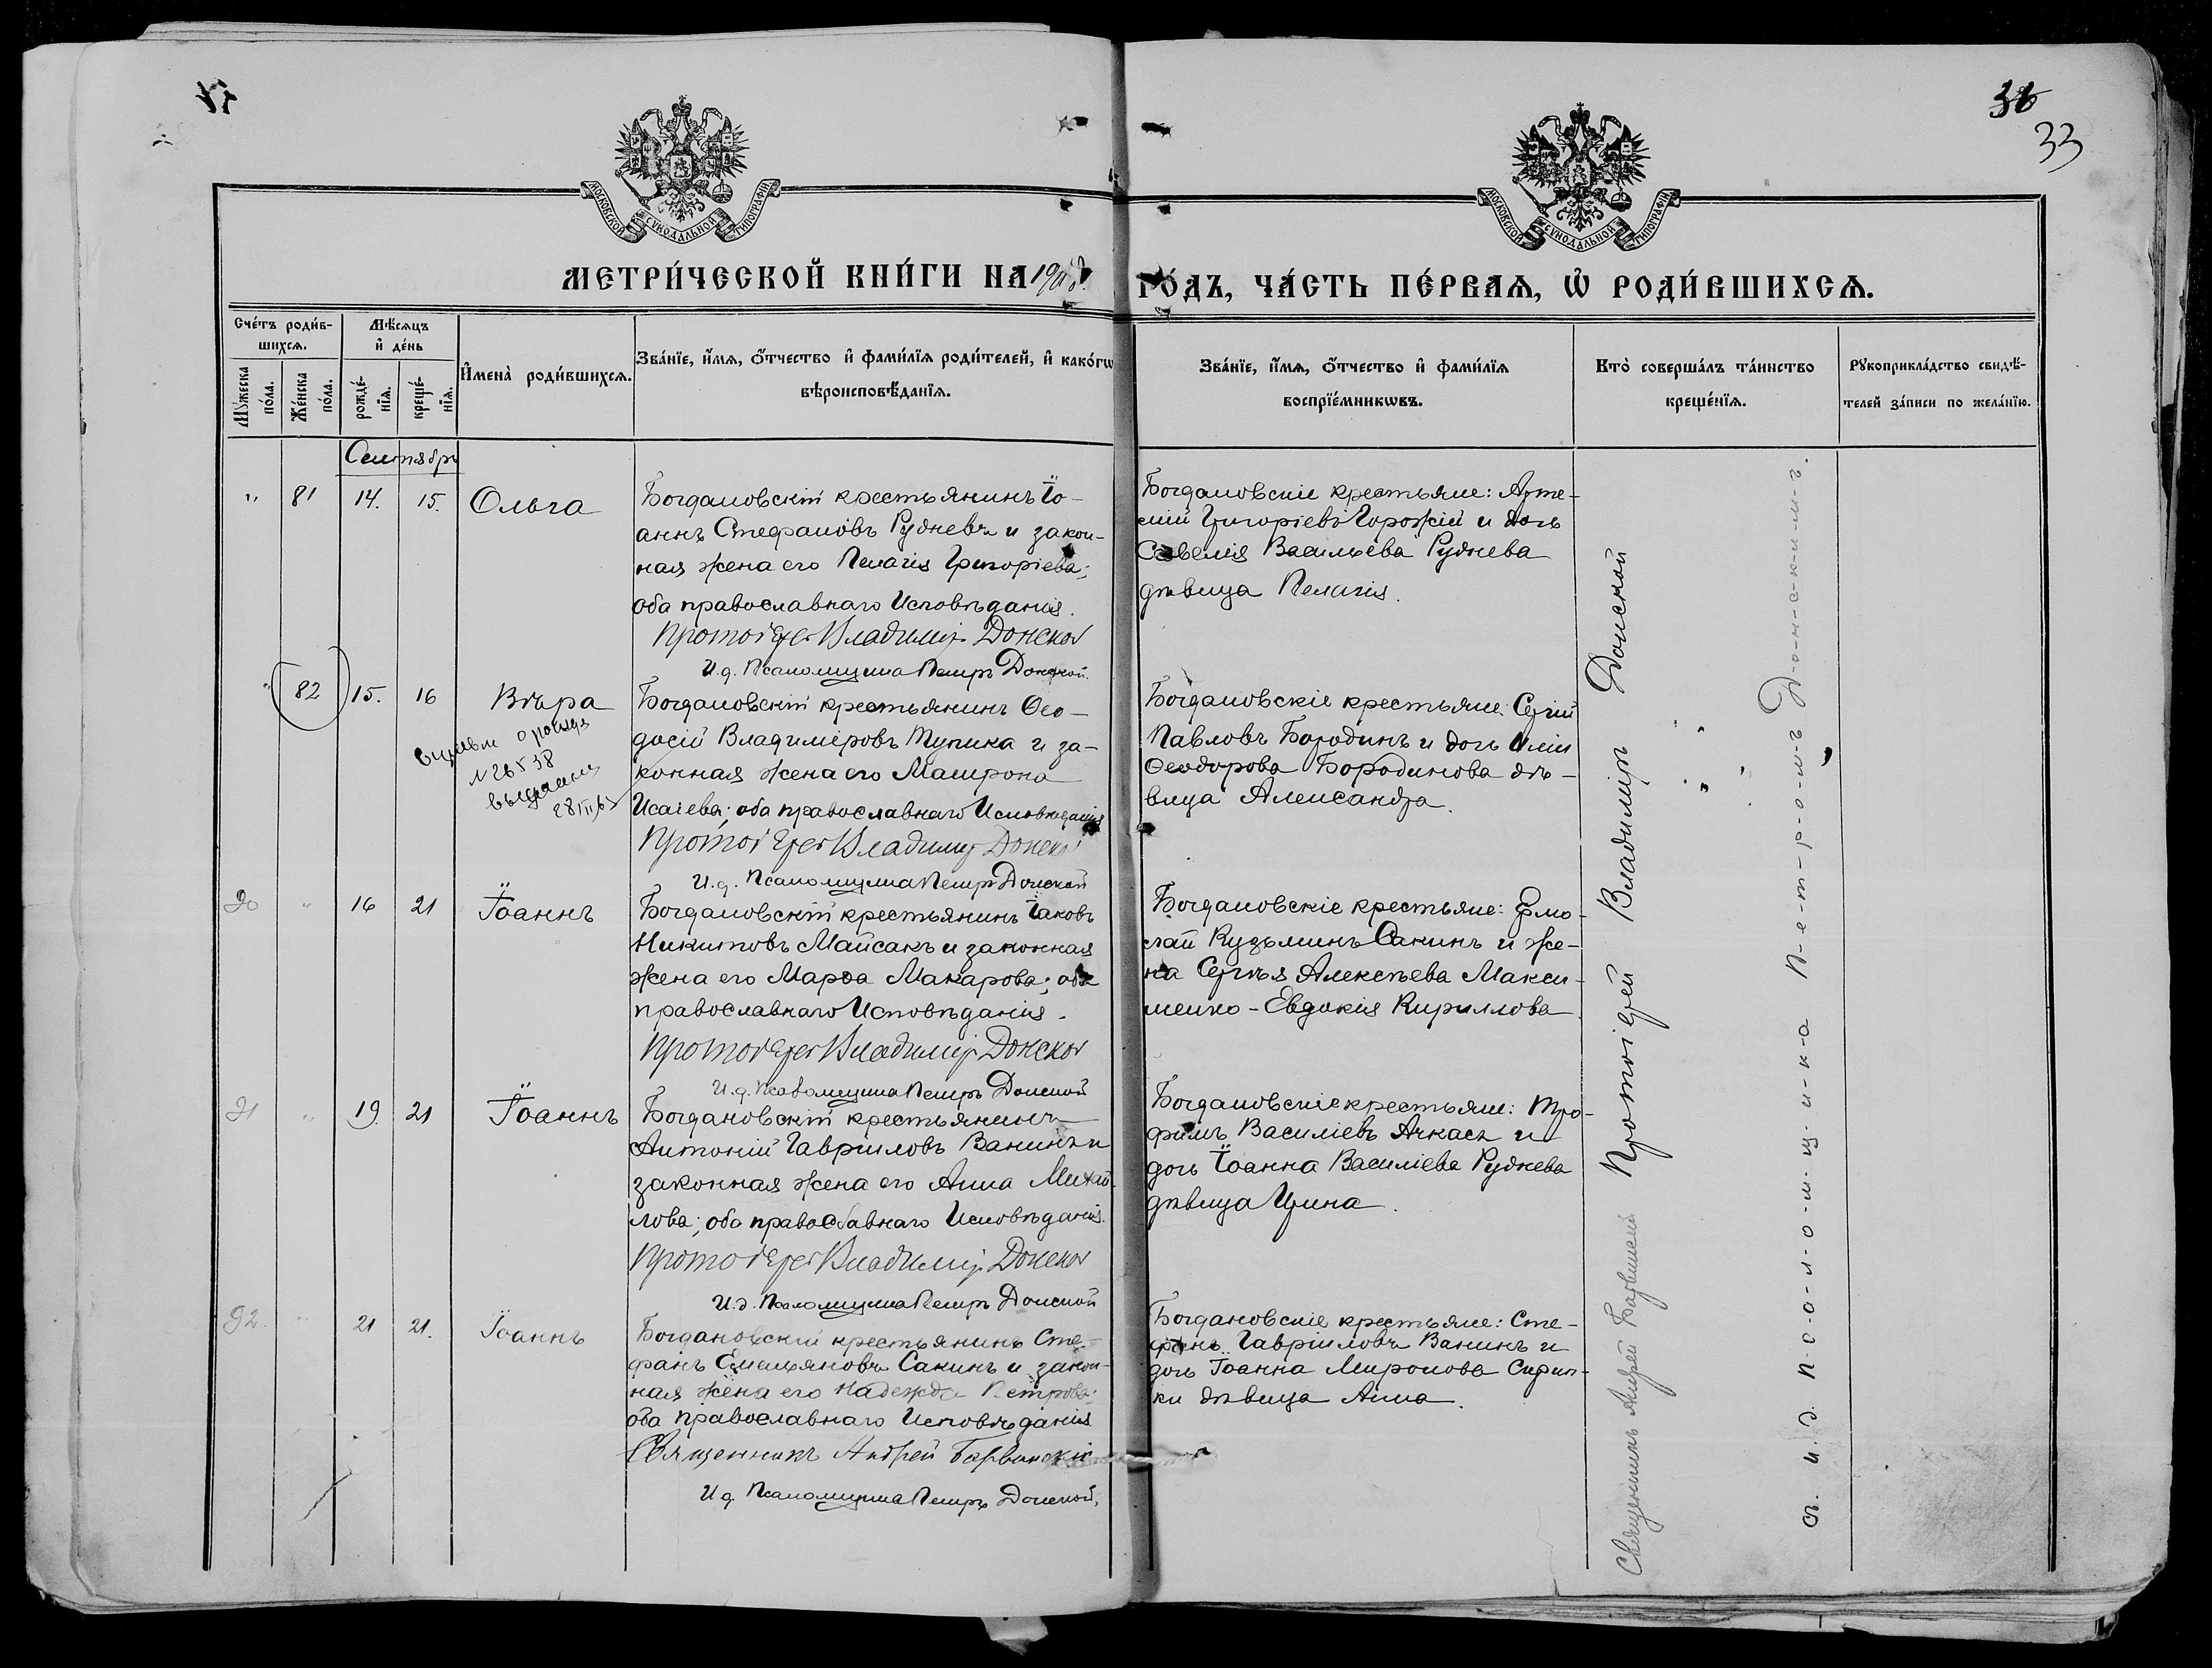 38
33
МОСКОВСКОЙ СУНОДАЛЬНОЙ ТИПОГРАФІИ
МОСКОВСКОЙ СУНОДАЛЬНОЙ ТИПОГРАФІИ
МЕТРИ́ЧЕСКОЙ КНИ́ГИ НА 1908
ГО́ДЪ, ЧА́СТЬ ПЕ́РВАѦ, Ѡ РОДИ́ВШИХСѦ.
Сче́тъ роди́в-
шихсѧ.
Мꙋ́жеска по́ла.
Же́нска по́ла.
Мѣ́сѧцъ
и҆ де́нь
рожде́-
нїѧ.
креще́-
нїѧ.
И҆мена̀ роди́вшихсѧ.
Зва́нїе, и҆́мѧ, ѻ҆́тчество и҆ фами́лїѧ роди́телей, и҆ како́гѡ
вѣроисповѣ́данїѧ.
Зва́нїе, и҆́мѧ, ѻ҆́тчество и҆ фами́лїѧ
воспрїе́мникѡвъ.
Кто̀ соверша́лъ та́инство
креще́нїѧ.
Рꙋкоприкла́дство свидѣ́-
телей за́писи по жела́нїю.
Сентябрь
" 81 14. 15. Ольга
Богдановскій крестьянинъ Іо-
аннъ Стефановъ Рудневъ и закон-
ная жена его Пелагія Григоріева;
оба православнаго Исповѣданія.
Протоіерей Владиміръ Донской
И.д. Псаломщика Петръ Донской.
Богдановскіе крестьяне: Арте-
мій Григоріевъ Горожій и дочь
Савелія Васильева Руднева
дѣвица Пелагія.
" 82 15. 16 Вѣра
N 26538
выдана
Богдановскій крестьянинъ Ѳео-
досій Владиміровъ Тупика и за-
конная жена его Матрона
Исаіева; оба православнаго Исповѣданія
Протоіерей Владиміръ Донской
И.д. Псаломщика Петръ Донской
Богдановскіе крестьяне: Сергій
Павловъ Бородинъ и дочь Иліи
Ѳеодорова Бородинова дѣ-
вица Александра.
90 " 16 21 Іоаннъ
Богдановскій крестьянинъ Іаковъ
Никитовъ Майсакъ и законная
жена его Марѳа Макарова; оба
православнаго Исповѣданія.
Протоіерей Владиміръ Донской
И.д. Псаломщика Петръ Донской
Богдановскіе крестьяне: Ермо-
лай Кузьминъ Сакинъ и же-
на Сергѣя Алексѣева Макси-
менко - Евдокія Кириллова
91 " 19. 21 Іоаннъ
Богдановскій крестьянинъ
Антоній Гавріиловъ Ванинъ и
законная жена его Анна Михай-
лова; оба православнаго Исповѣданія.
Протоіерей Владиміръ Донской
И.д. Псаломщика Петръ Донской
Богдановскіе крестьяне: Тро-
фимъ Василіевъ Ачкасъ и
дочь Іоанна Василіева Руднева
дѣвица Ирина.
92. " 21 21. Іоаннъ
Богдановскій крестьянинъ Сте-
фанъ Емельяновъ Сакинъ и закон-
ная жена его Надежда Петрова;
оба православнаго Исповѣданія
Священникъ Андрей Барвинскій
И.д. Псаломщика Петръ Донской.
Богдановскіе крестьяне: Сте-
фанъ Гавріиловъ Ванинъ и
дочь Іоанна Миронова
дѣвица Анна.
Протоіерей Владиміръ Донской
Священникъ Андрей Барвинскій
съ и.д. п-с-а-л-о-м-щ-и-к-а П-е-т-р-о-м-ъ Д-о-н-с-к-и-м-ъ.